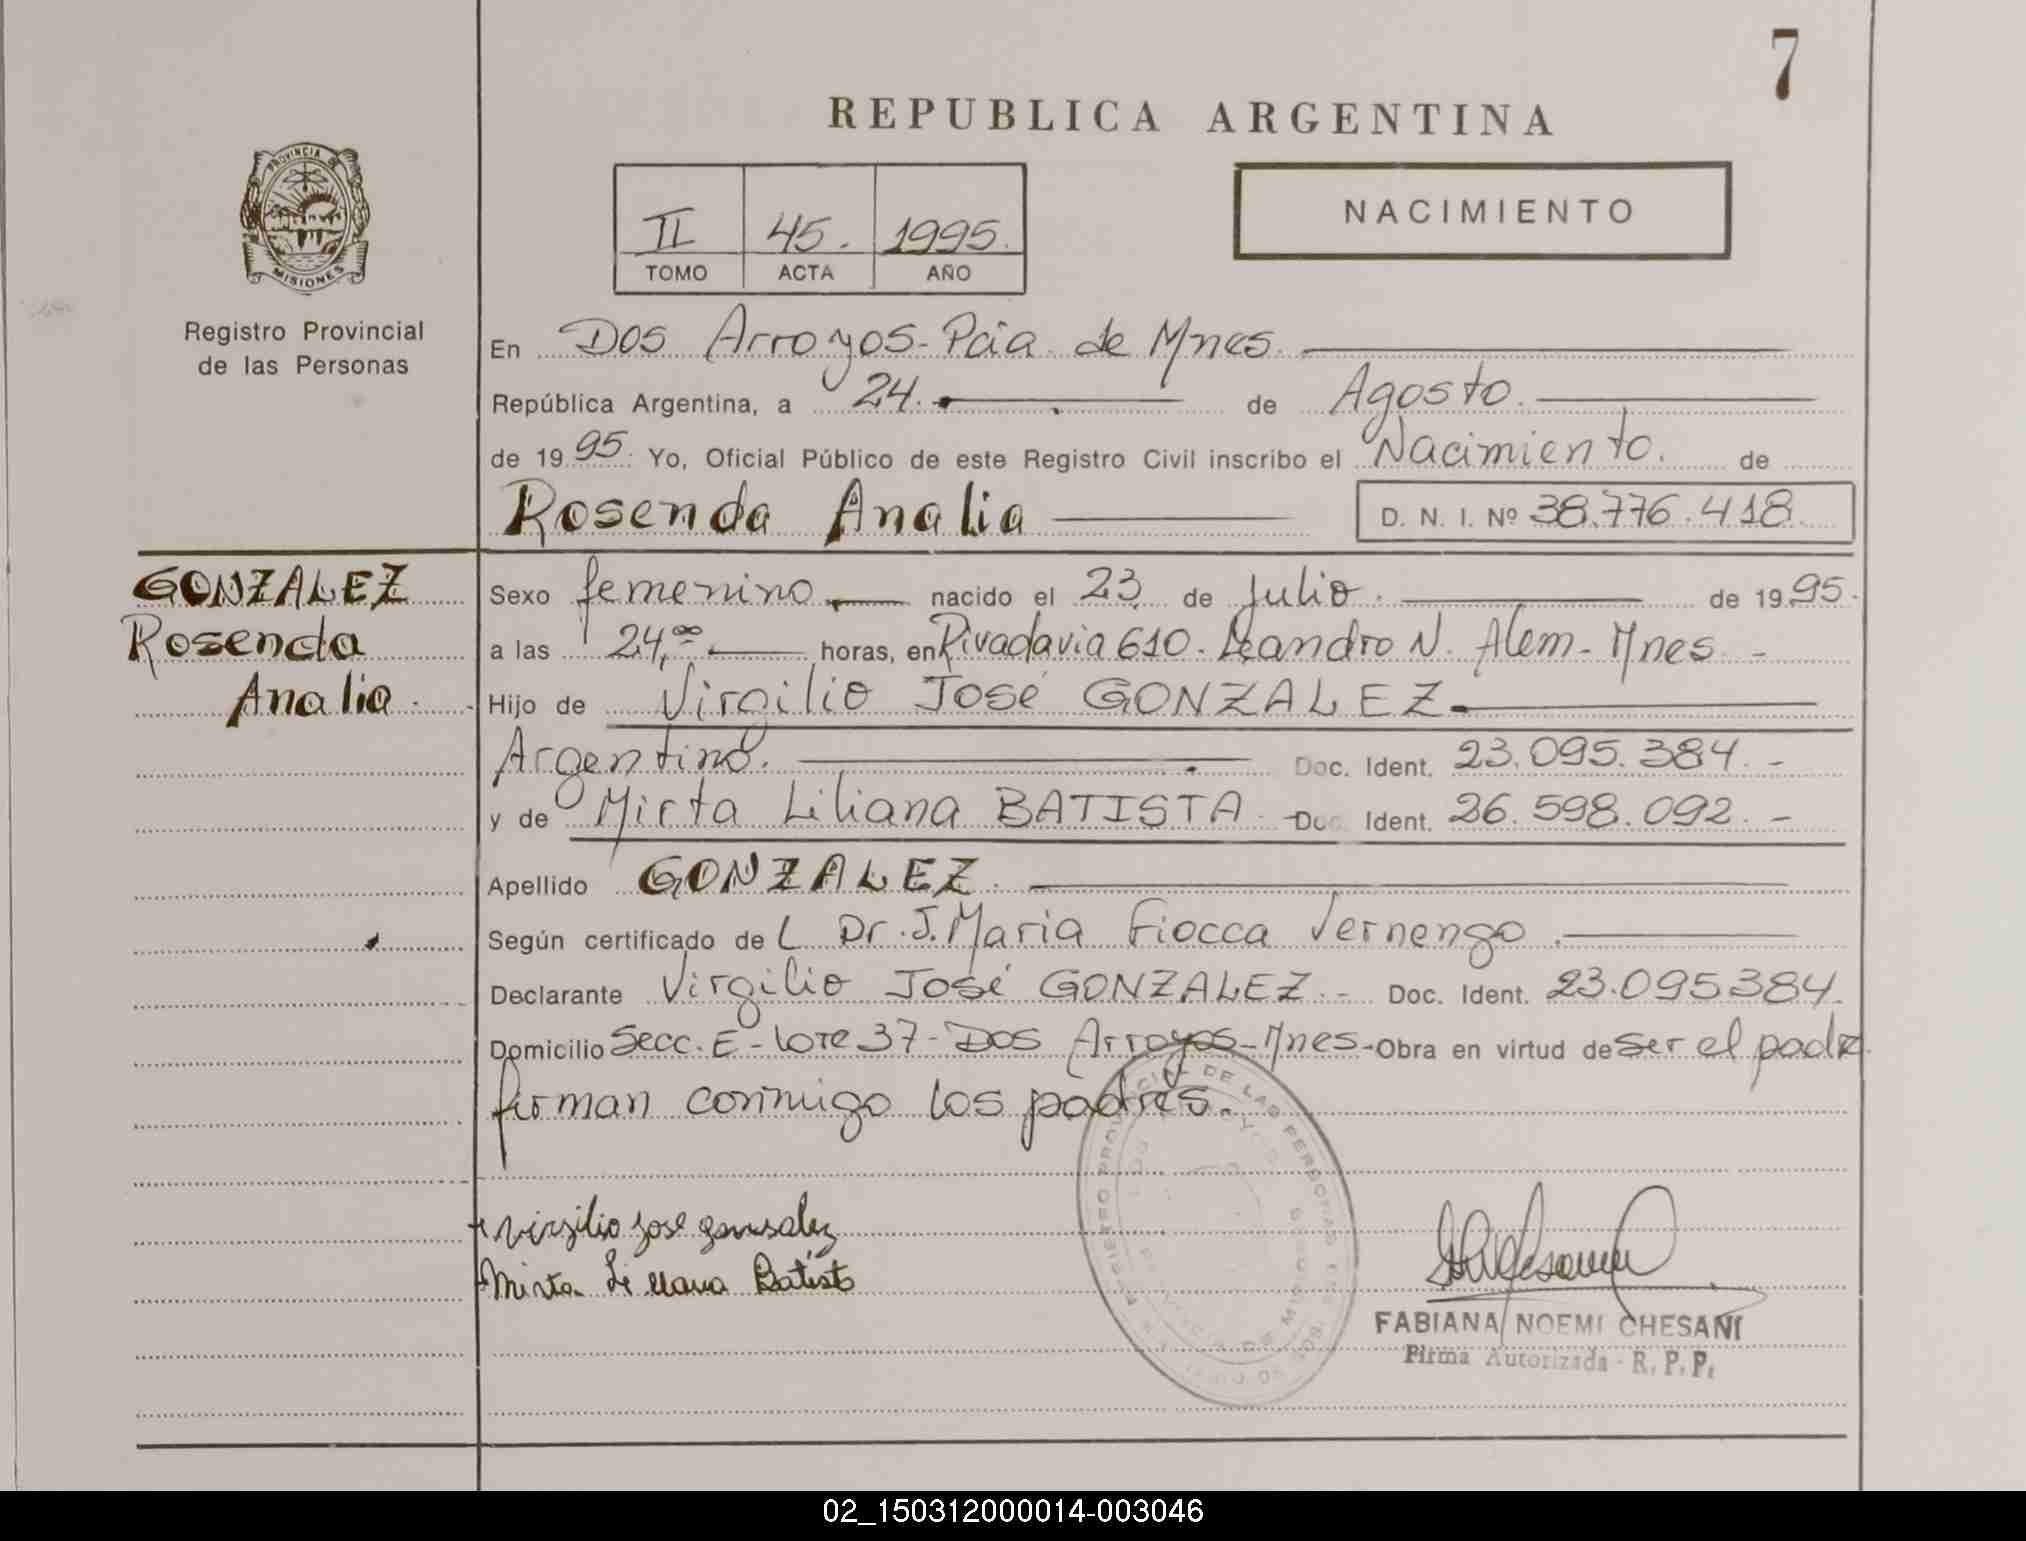 7
REPUBLICA ARGENTINA
NACIMIENTO
II 45. 1995.
TOMO ACTA AÑO
PROVINCIA DE
MISIONES
Registro Provincial
de las Personas
En Dos Arroyos - Pcia. de Mnes.
República Argentina, a 24. de Agosto.
de 1995. Yo, Oficial Público de este Registro Civil inscribo el Nacimiento. de
Rosenda Analia D. N. I. Nº 38.776.418.
GONZALEZ
Rosenda
Analia.
Sexo femenino nacido el 23 de Julio. de 1995.
a las 24,ºº horas, en Rivadavia 610. Leandro N. Alem - Mnes. -
Hijo de Virgilio José GONZALEZ
Argentino. Doc. Ident. 23.095.384. -
y de Mirta Liliana BATISTA. Doc. Ident. 26.598.092. -
Apellido GONZALEZ.
Según certificado de L Dr. J. Maria Fiocca Vernengo.
Declarante Virgilio José GONZALEZ. - Doc. Ident. 23.095384.
Domicilio Secc. E - Lote 37 - Dos Arroyos - Mnes - Obra en virtud de ser el padre.
firman conmigo los padres.
virgilio jose gonsalez
Mirta Liliana Batista
FABIANA NOEMI CHESANI
Firma Autorizada - R. P. P.
02_150312000014-003046